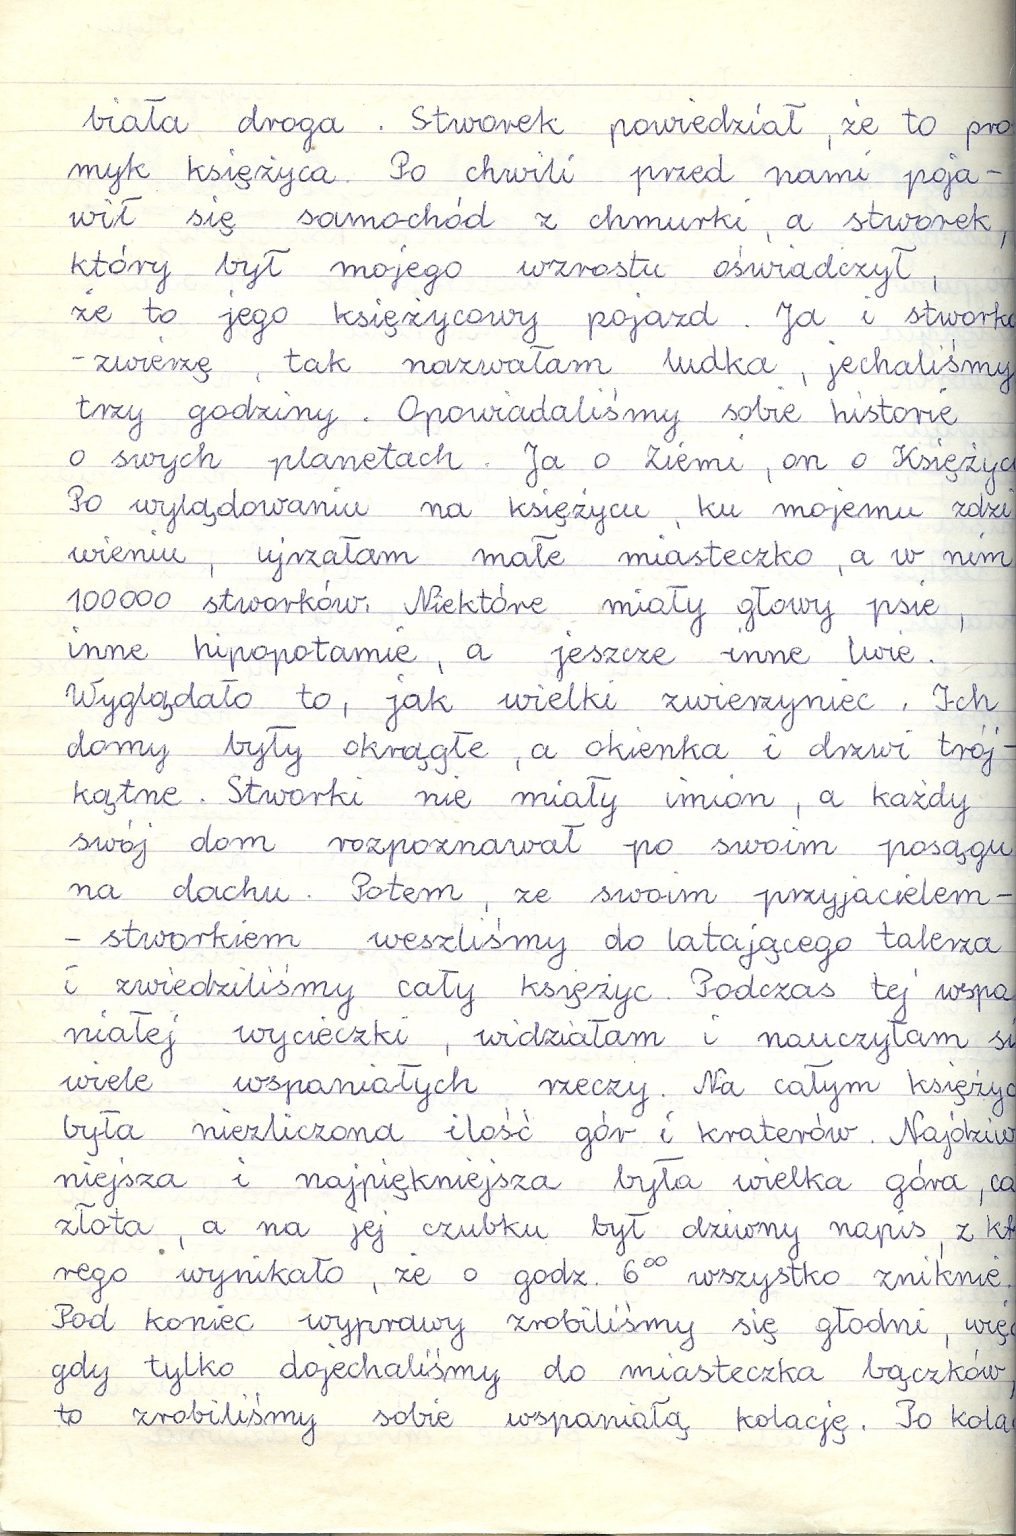 biała droga . Stworek powiedział , że to pro
myk księżyca . Po chwili przed nami poja -
wił się samochód z chmurki , a stworek ,
który był mojego wzrostu oświadczył ,
że to jego księżycowy pojazd . Ja i stworko
- zwierzę , tak nazwałam ludka , jechaliśmy
trzy godziny . Opowiadaliśmy sobie historie
o swych planetach . Ja o Ziemi , on o Księżyc
Po wylądowaniu na księżycu , ku mojemu zdzi
wieniu , ujrzałam małe miasteczko , a w nim
100000 stworków. Niektóre miały głowy psie ,
inne hipopotamie , a jeszcze inne lwie .
Wyglądało to , jak wielki zwierzyniec . Ich
domy były okrągłe , a okienka i drzwi trój -
kątne . Stworki nie miały imion , a każdy
swój dom rozpoznawał po swoim posągu
na dachu . Potem , ze swoim przyjacielem -
- stworkiem weszliśmy do latającego talerza
i zwiedziliśmy cały księżyc . Podczas tej wspa
niałej wycieczki , widziałam i nauczyłam si
wiele wspaniałych rzeczy . Na całym księżyc
była niezliczona ilość gór i kraterów . Najdziw
niejsza i najpiękniejsza była wielka góra , ca
złota , a na jej czubku był dziwny napis , z kt
rego wynikało , że o godz. 6⁰⁰ wszystko zniknie .
Pod koniec wyprawy zrobiliśmy się głodni , więc
gdy tylko dojechaliśmy do miasteczka bączków ,
to zrobiliśmy sobie wspaniałą kolację . Po kola